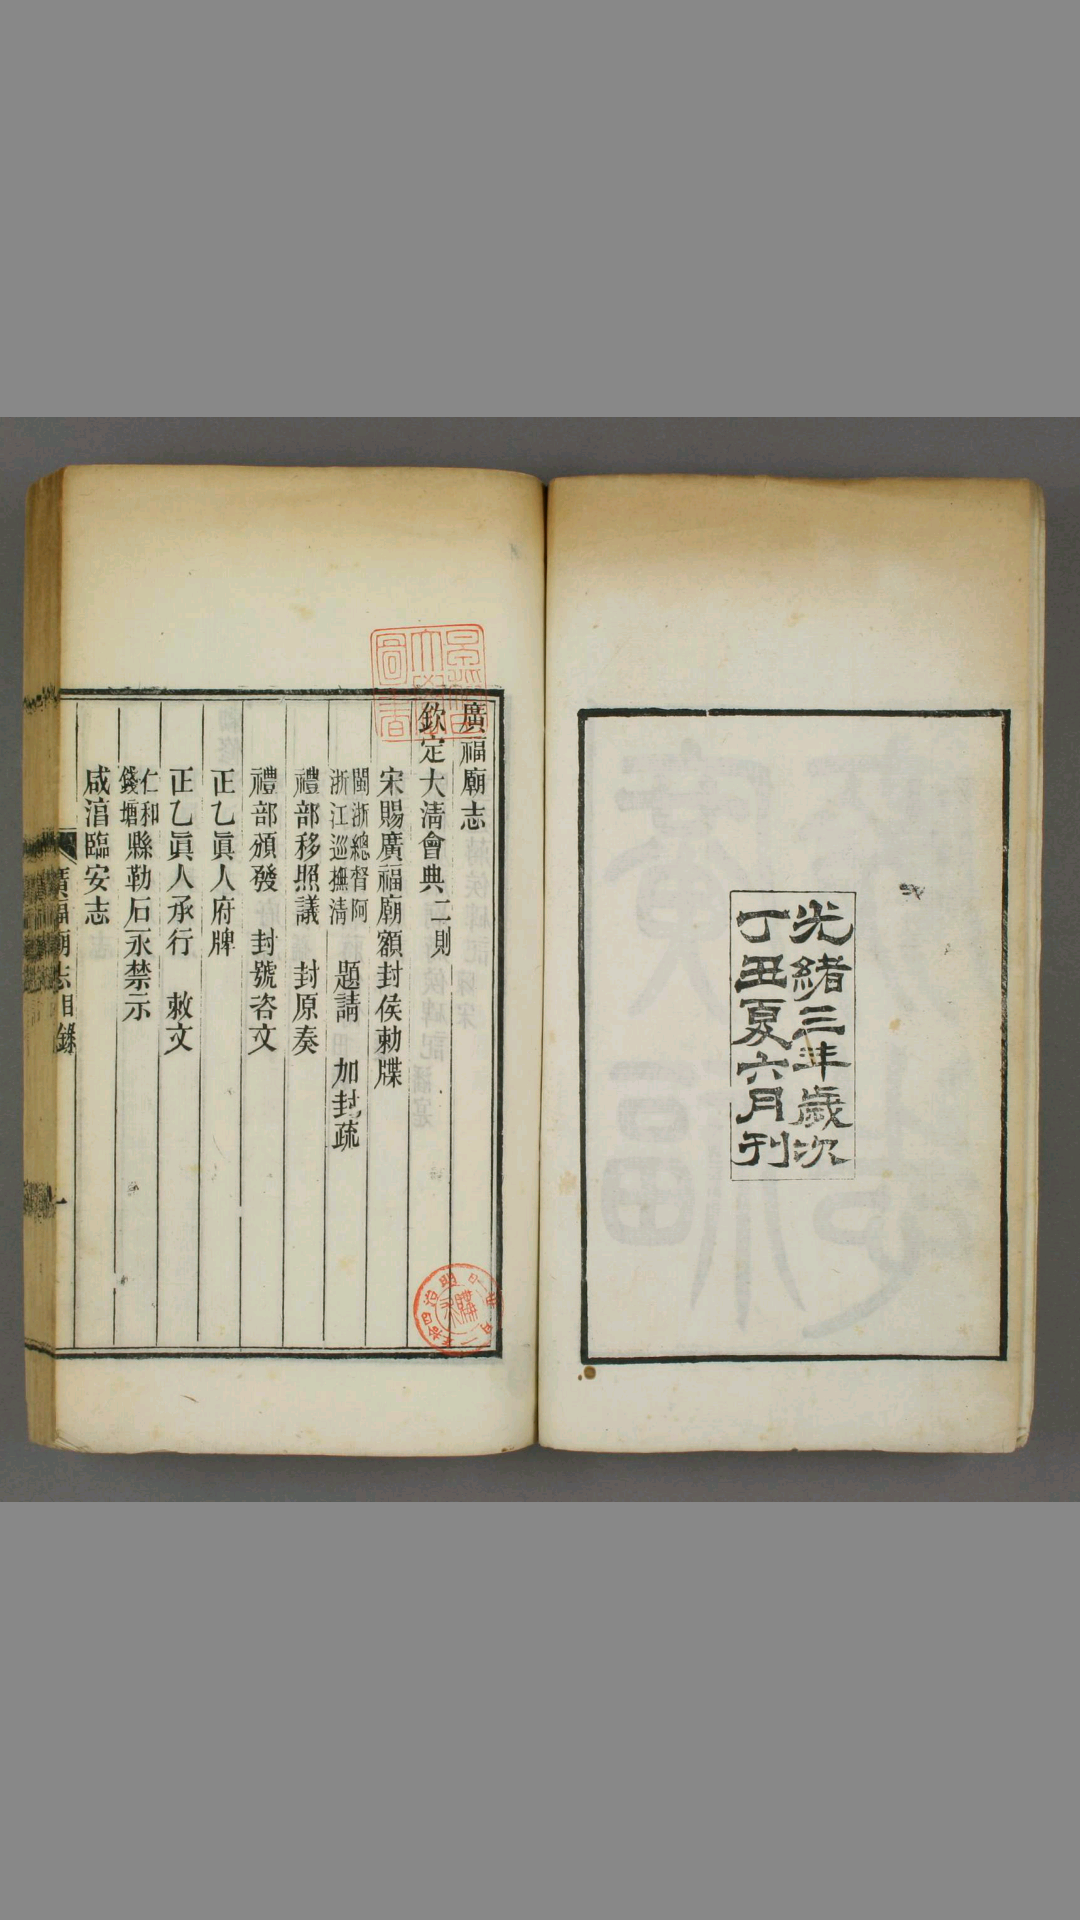 光緒三年歲次
丁丑夏六月刊
廣福廟志
欽定大清會典二則
宋賜廣福廟額封侯勅牒
閩浙總督阿
浙江巡撫清 題請 加封疏
禮部移照議 封原奏
禮部頒發 封號咨文
正乙眞人府牌
正乙眞人承行 敕文
仁和
錢塘縣勒石永禁示
咸淳臨安志
廣福廟志目錄 一